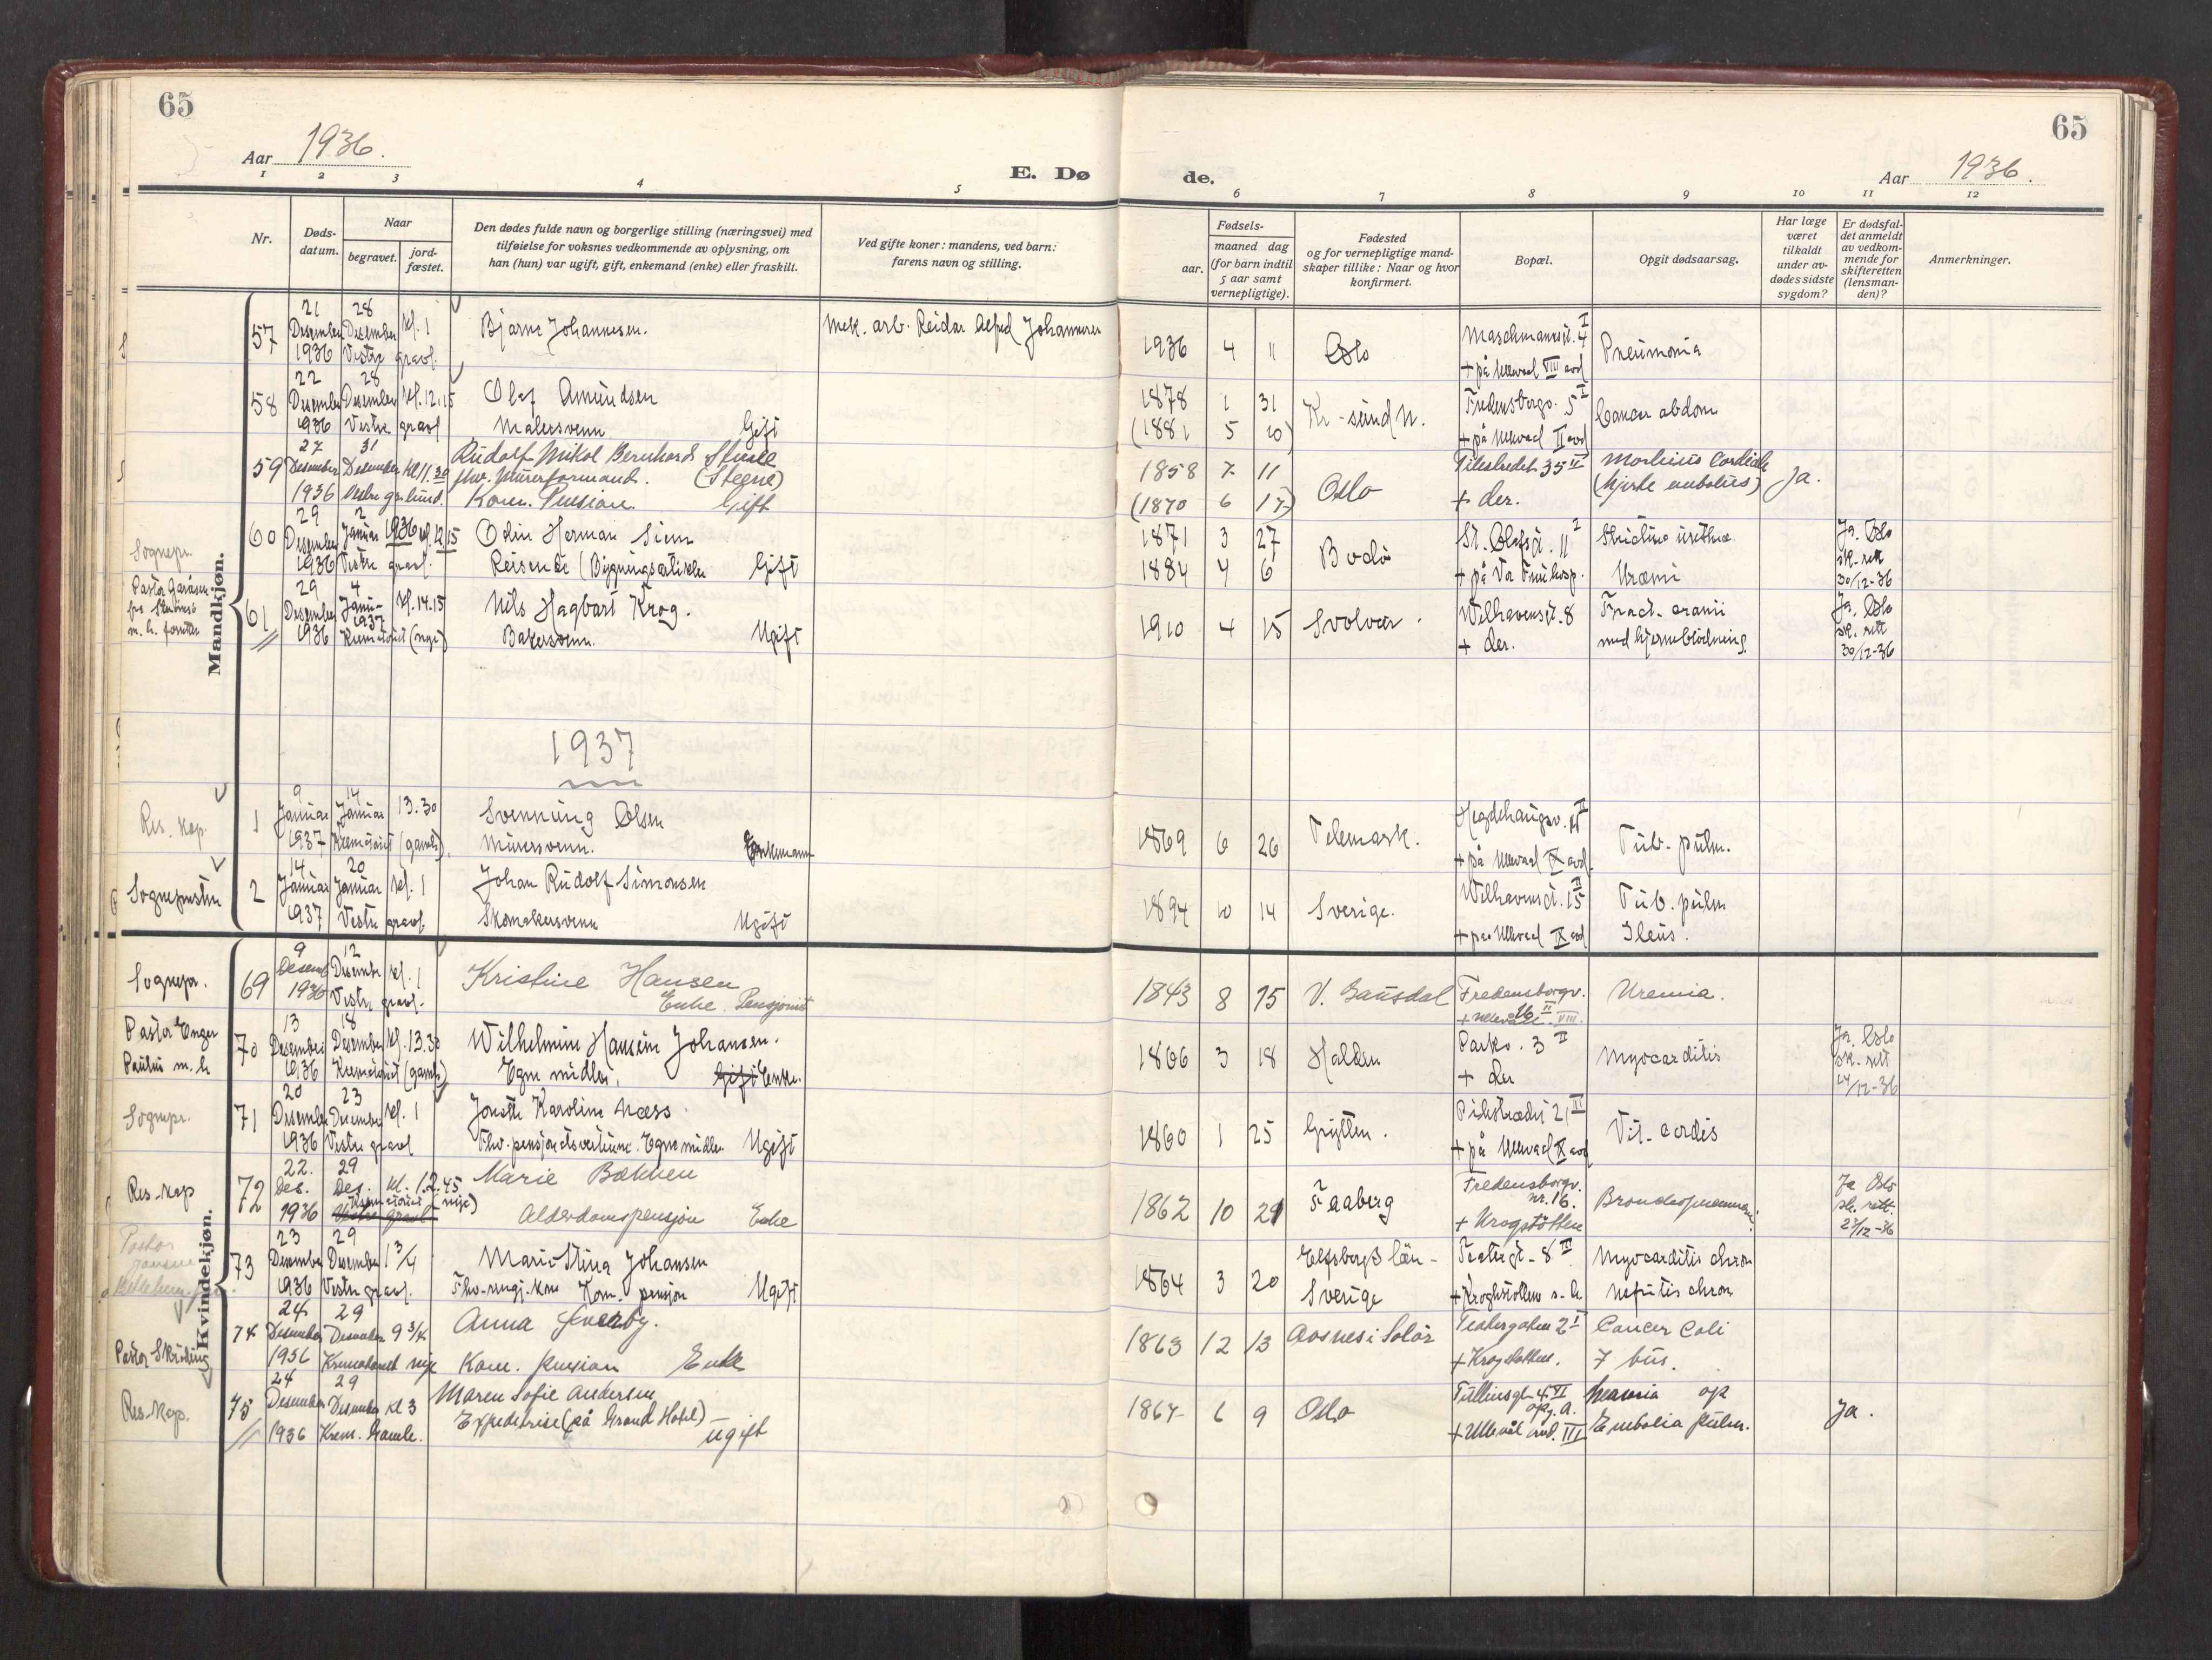 65
Aar 1936.
E. Dø
1 2 3 4 5
Nr.
Døds-
datum.
Naar
begravet.
jord-
fæstet.
Den dødes fulde navn og borgerlige stilling (næringsvei) med
tilføielse for voksnes vedkommende av oplysning, om
han (hun) var ugift, gift, enkemand (enke) eller fraskilt.
Ved gifte koner: mandens, ved barn:
farens navn og stilling.
Mandkjøn.
21 28
57 Desember Desember kl. 1 Bjarne Johannesen. Mek. arb. Reidar Alfred Johannesen
1936 Vestre gravl.
22 28
58 Desember Desember kl. 12.15 Olaf Amundsen
1936 Vestre gravl Malersvenn Gift
27 31
59 Desember Desember kl 11.30 Rudolf Mikal Bernhard
1936 Vestre gr.lund. fhv. Murerformand. (Steene)
Kom. Pension. Gift
29 2
60 Desember Januar 1936 kl. 12.15 Odin Herman Siem
1936 Vestre gravl. Reisende (Bygningsartikler Gift
Sognepr.
Pastor
29 4
61 Desember Janu- kl. 14.15 Nils Hagbart Krog.
1937
1936 Krematoriet (nye) Bakersvenn. Ugift
1937
9 14
Res. kap. 1 Januar Januar 13.30 Svennung Olsen
1937 Krematoriet (gamle). Murersvenn. Enkemann
14 20
Sognepresten 2 Januar Januar kl. 1 Johan Rudolf Simonsen
1937 Vestre gravl. Skomakersvenn Ugift
Kvindekjøn.
9 12
Sognepr. 69 Desemb Desember kl. 1 Kristine Hansen
1936 Vestre gravl. Enke. Pensjonist
13 18
Pastor Enger 70 Desember Desember kl. 13.30 Wilhelmine Hansine Johansen.
Paulus m. h 1936 Krematoriet (gamle) Egne midler, Gift Enke.
20 23
Sognepr. 71 Desember Desember kl. 1 Jonette Karoline Næss.
1936 Vestre gravl Fhv. pensjonatsvertinne. Egne midler Ugift
22. 29
Res-kap 72 Des. Des. kl. 12.45 Marie Bækken
Krematoriet (nye)
1936 Vestre gravl Alderdomspensjon Enke
23 29
Pastor 73 Desember Desember 1 3/4 Marie Stina Johansen
1936 Vestre gravl. Fhv. rengj. kone Kom. pensjon Ugift
24 29
74 Desember Desember 9 3/4 Anna
Pastor 1936 Krematoriet nye Kom. pension Enke
24 29
Res-kap. 75 Desember Desember kl 3 Maren Sofie Andersen
1936 Krem. Gamle. Expeditrise (på Grand Hotel) –
ugift
65
de.
Aar 1936.
6 7 8 9 10 11 12
Fødsels-
aar.
maaned dag
(for barn indtil
5 aar samt
vernepligtige).
Fødested
og for vernepligtige mand-
skaper tillike: Naar og hvor
konfirmert.
Bopæl.
Opgit dødsaarsag.
Har læge
været
tilkaldt
under av-
dødes sidste
sygdom?
Er dødsfal-
det anmeldt
av vedkom-
mende for
skifteretten
(lensman-
den)?
Anmerkninger.
1936 4 11 Oslo Maschmannsgt. 4 I Pneumonia
+ på Ullevaal VIII avd
1878 1 31 Kr-sund N. Fredensborgv. 5 I Cancer abdom
(1881 5 20) + på Ullevaal II avd
1858 7 11 Oslo Pilestredet 35 II Morbus Cordis
(1870 6 17) + der. (hjerte embolus) Ja.
1871 3 27 Bodø St. Olafsgt. 11 2 Strictura urethra. Ja. Oslo
sk. rett
1884 4 6 + på Vor Frue hosp. Uræmi 30/12-36
1910 4 15 Svolvær. Welhavensgt. 8 Fract. cranii Ja. Oslo
sk. rett
+ der. med hjerneblødning. 30/12-36
1869 6 26 Telemark. Hegdehaugsv. II Tub. pulm.
+ på Ullevaal IX avd.
1894 10 14 Sverige. Welhavensgt. 15 II Tub. pulm
+ paa Ullevaal IX avd Ileus.
1843 8 15 V. Gausdal Fredensborgv. 16 II Uremia.
+ Ullevål VIII.
1866 3 18 Halden Parkv. 3 II Myocarditis Ja. Oslo
sk. rett
+ der 14/12-36
1860 1 25 Grytten. Pilestrædet 21 III Vit. cordis
+ på Ullevaal X avd
1862 10 29 Faaberg Fredensborgv. nr. 16. Ja Oslo
sk. rett.
+ Krogstøtten 27/12-36
1864 3 20 Elfsborgs län – Teatergt. 8 III Myocarditis chron
Sverige + Kroghstøttens s. h. Nefritis chron
1863 12 13 Aasnes i Solør Teatergaten 2 I Cancer Coli
+ Krogstøtten.
1864 6 9 Oslo Tullinsgt. 4 VI opg. a. op Ja.
+ Ullevål avd. III Embolia pulm.